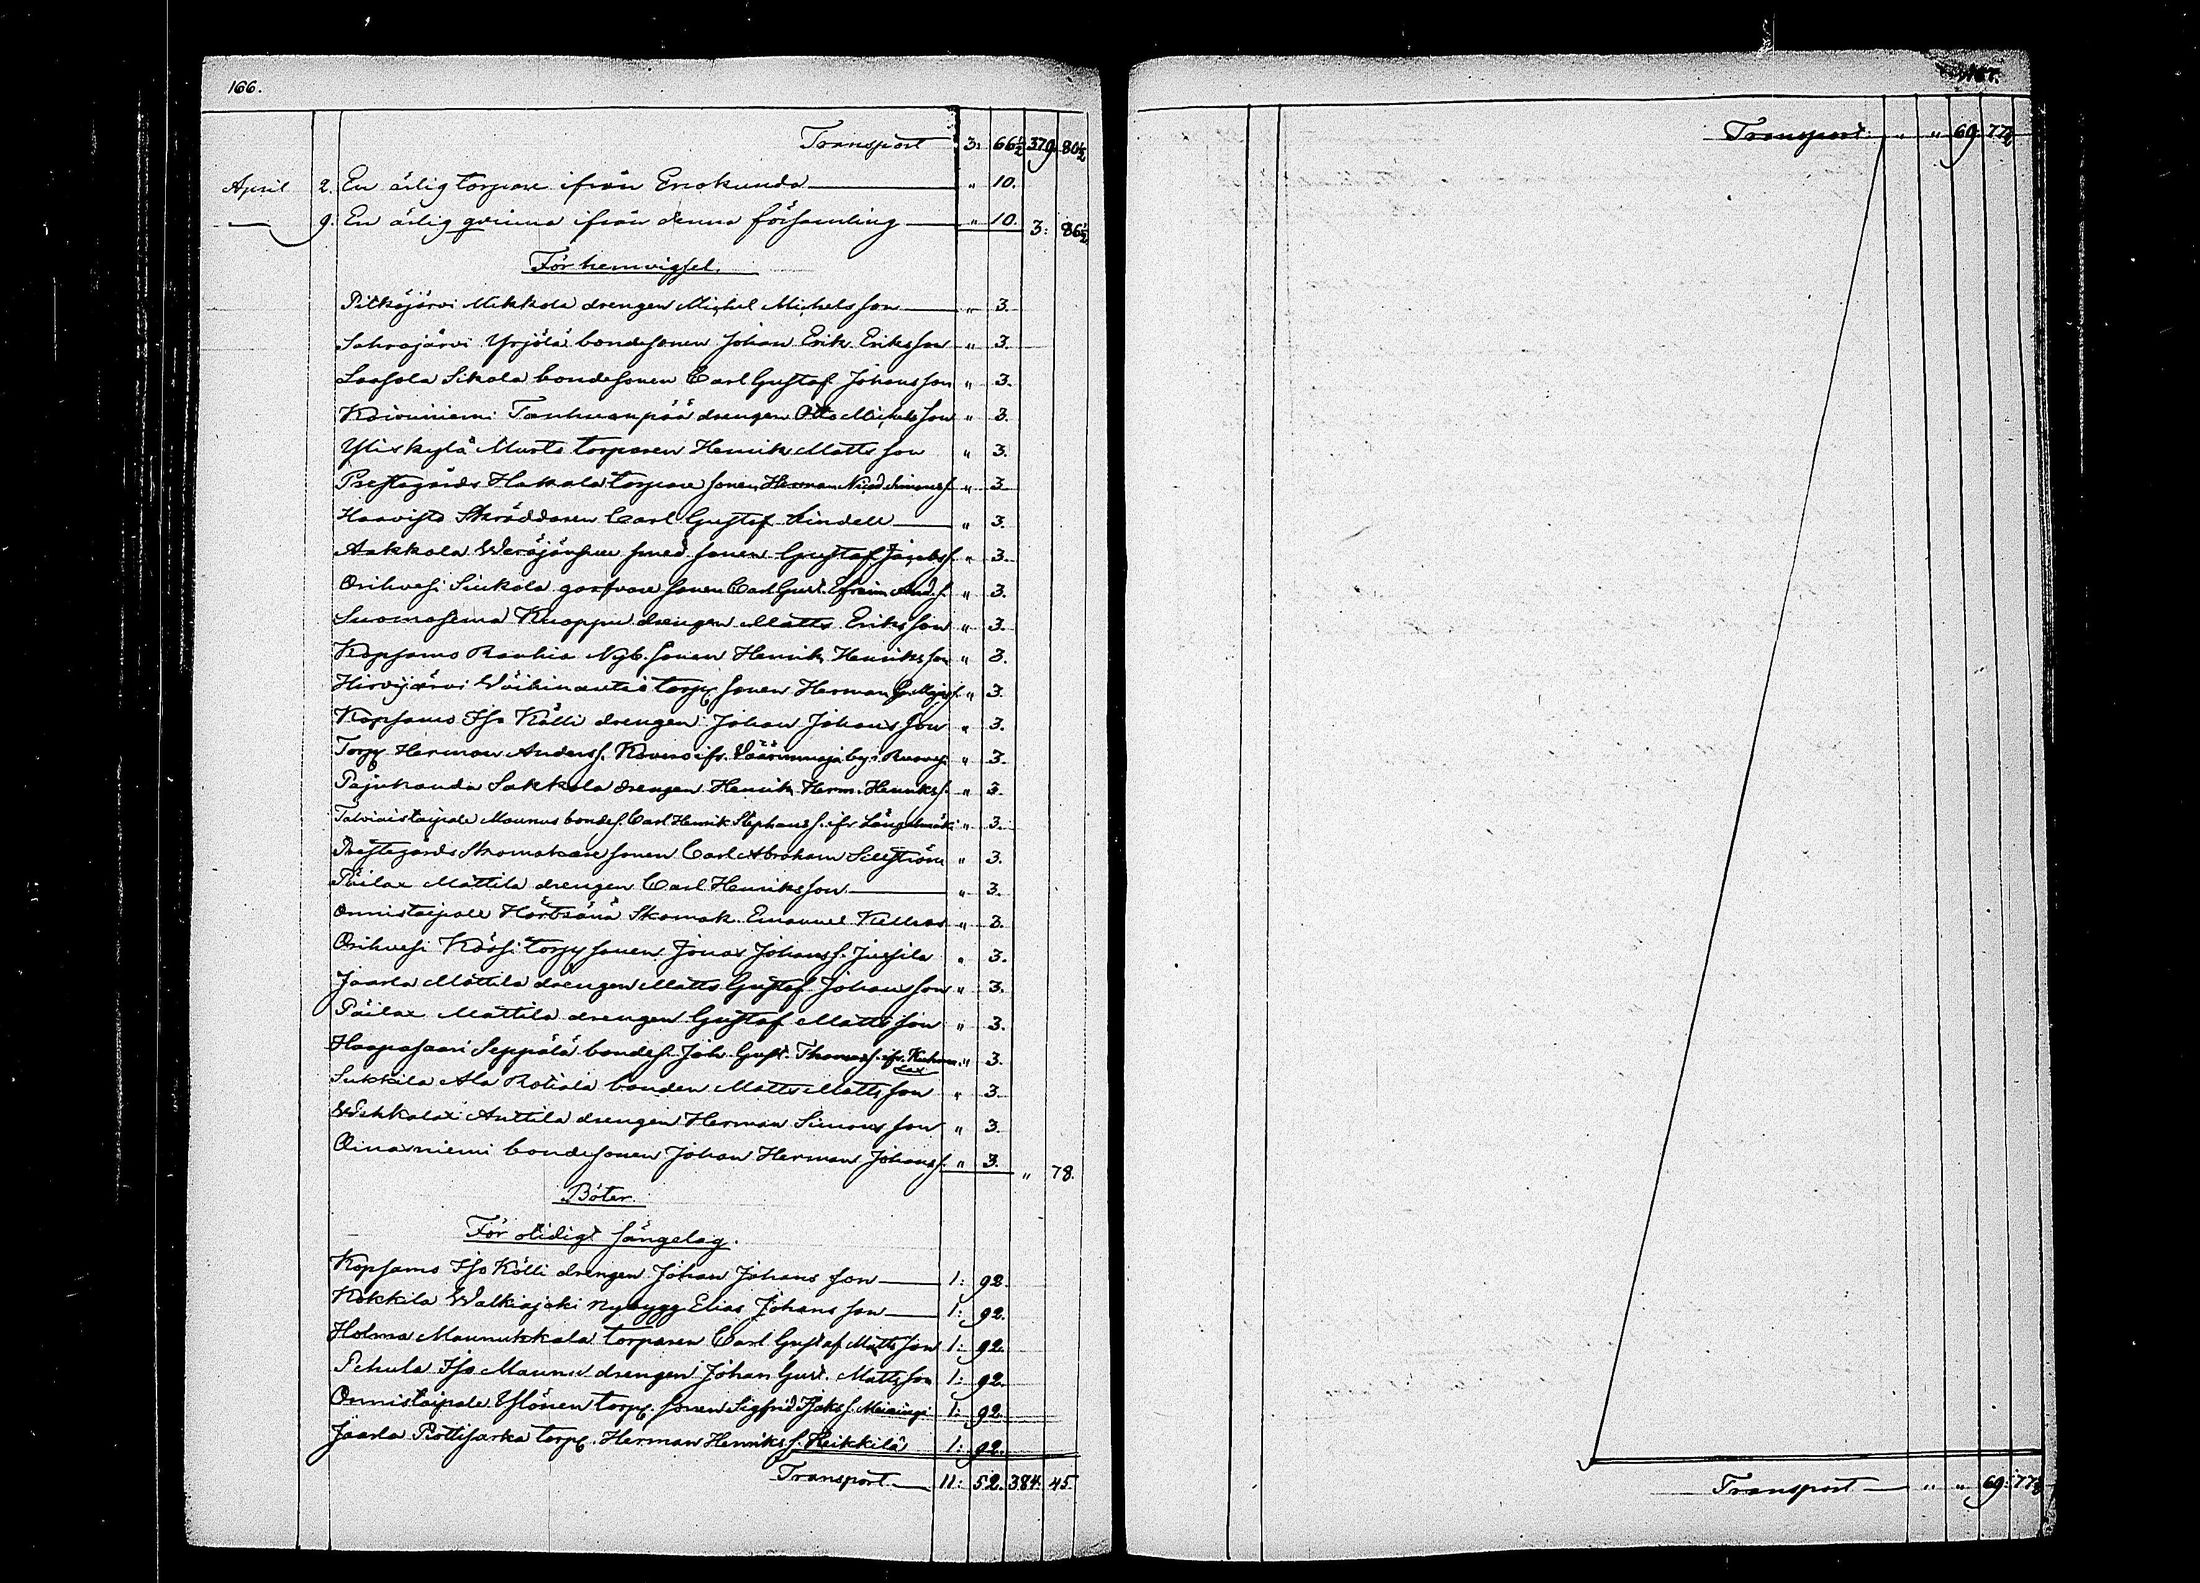 166.
Transport 3: 66½ 379. 80½
April 2. En ärlig torpare ifrån Eräkunda " 10.
— 9. En ärlig qvinna ifrån denna församling " 10. 3: 86½
För hemvigsel.
Pitkäjärvi Mikkola drengen Michel Michelsson " 3.
Sahrajärvi Yrjölä bondesonen Johan Erik Eriksson " 3.
Laasola Sikala bondesonen Carl Gustaf Johansson " 3.
Koivuniemi Tauhuanpää drengen Otto Michelsson " 3.
Yliskylä Murto torparen Henrik Mattsson " 3.
Prestegårds Hakala torpare sonen Herman Nicod. Simonss. " 3.
Haavisto Skräddaren Carl Gustaf Lindell " 3.
Aakkola Weräjänsuu smed sonen Gustaf Jacobss. " 3.
Orihvesi Siukola garfvare sonen Carl Gust. Efraim And.s. " 3.
Suomasema Kuoppu drengen Matts Eriksson " 3.
Kopsamo Rauhia Nyb. sonen Henrik Henriksson " 3.
Hirvijärvi torp. sonen Herman " 3.
Kopsamo Iso Kölli drengen Johan Johansson " 3.
Torp. Herman Anderss. Kovero ifr. Väärinmaja by i Ruovesi " 3.
Pajukanda Sakkola drengen Henrik Herm. Henrikss. " 3.
Talviaistaipale Maunus bondes. Carl Henrik Stephanss. ifr Längelmäki " 3.
Prestegårds Skomakare sonen Carl Abraham Sellström " 3.
Päilax Mattila drengen Carl Henriksson " 3.
Onnistaipale Härtsänä Skomak. Emanuel " 3.
Orihvesi Kössi torp sonen Jonas Johanss. Jussila " 3.
Jaarla Mattila drengen Matts Gustaf Johansson " 3.
Päilax Mattila drengen Gustaf Mattsson " 3.
Haapasaari Seppälä bondes. Joh. Gust. Thomass. ifr. Kuhma- " 3.
lax
Sukkila Ala Rotiala bonden Matts Mattsson " 3.
Wehkalax Anttila drengen Herman Simonsson " 3.
Oinasniemi bondesonen Johan Herman Johanss. " 3. " 78.
Böter.
För otidigt sängelag.
Kopsamo Iso Kölli drengen Johan Johansson 1: 92.
Kokkila Walkiajoki nybygg Elias Johansson 1: 92.
Holma Maunukkala torparen Carl Gustaf Mattsson 1: 92.
Pehula Iso Maunu drengen Johan Gust. Mattsson 1: 92.
Onnistaipale Ylönen torp. sonen Sigfrid Isaks s. 1: 92.
Jaarla Rottisarka torp. Herman Henriks s. Heikkilä 1: 92.
Transport 11: 52. 384. 45.
167.
Transport " " 69: 77½
Transport " " 69: 77½